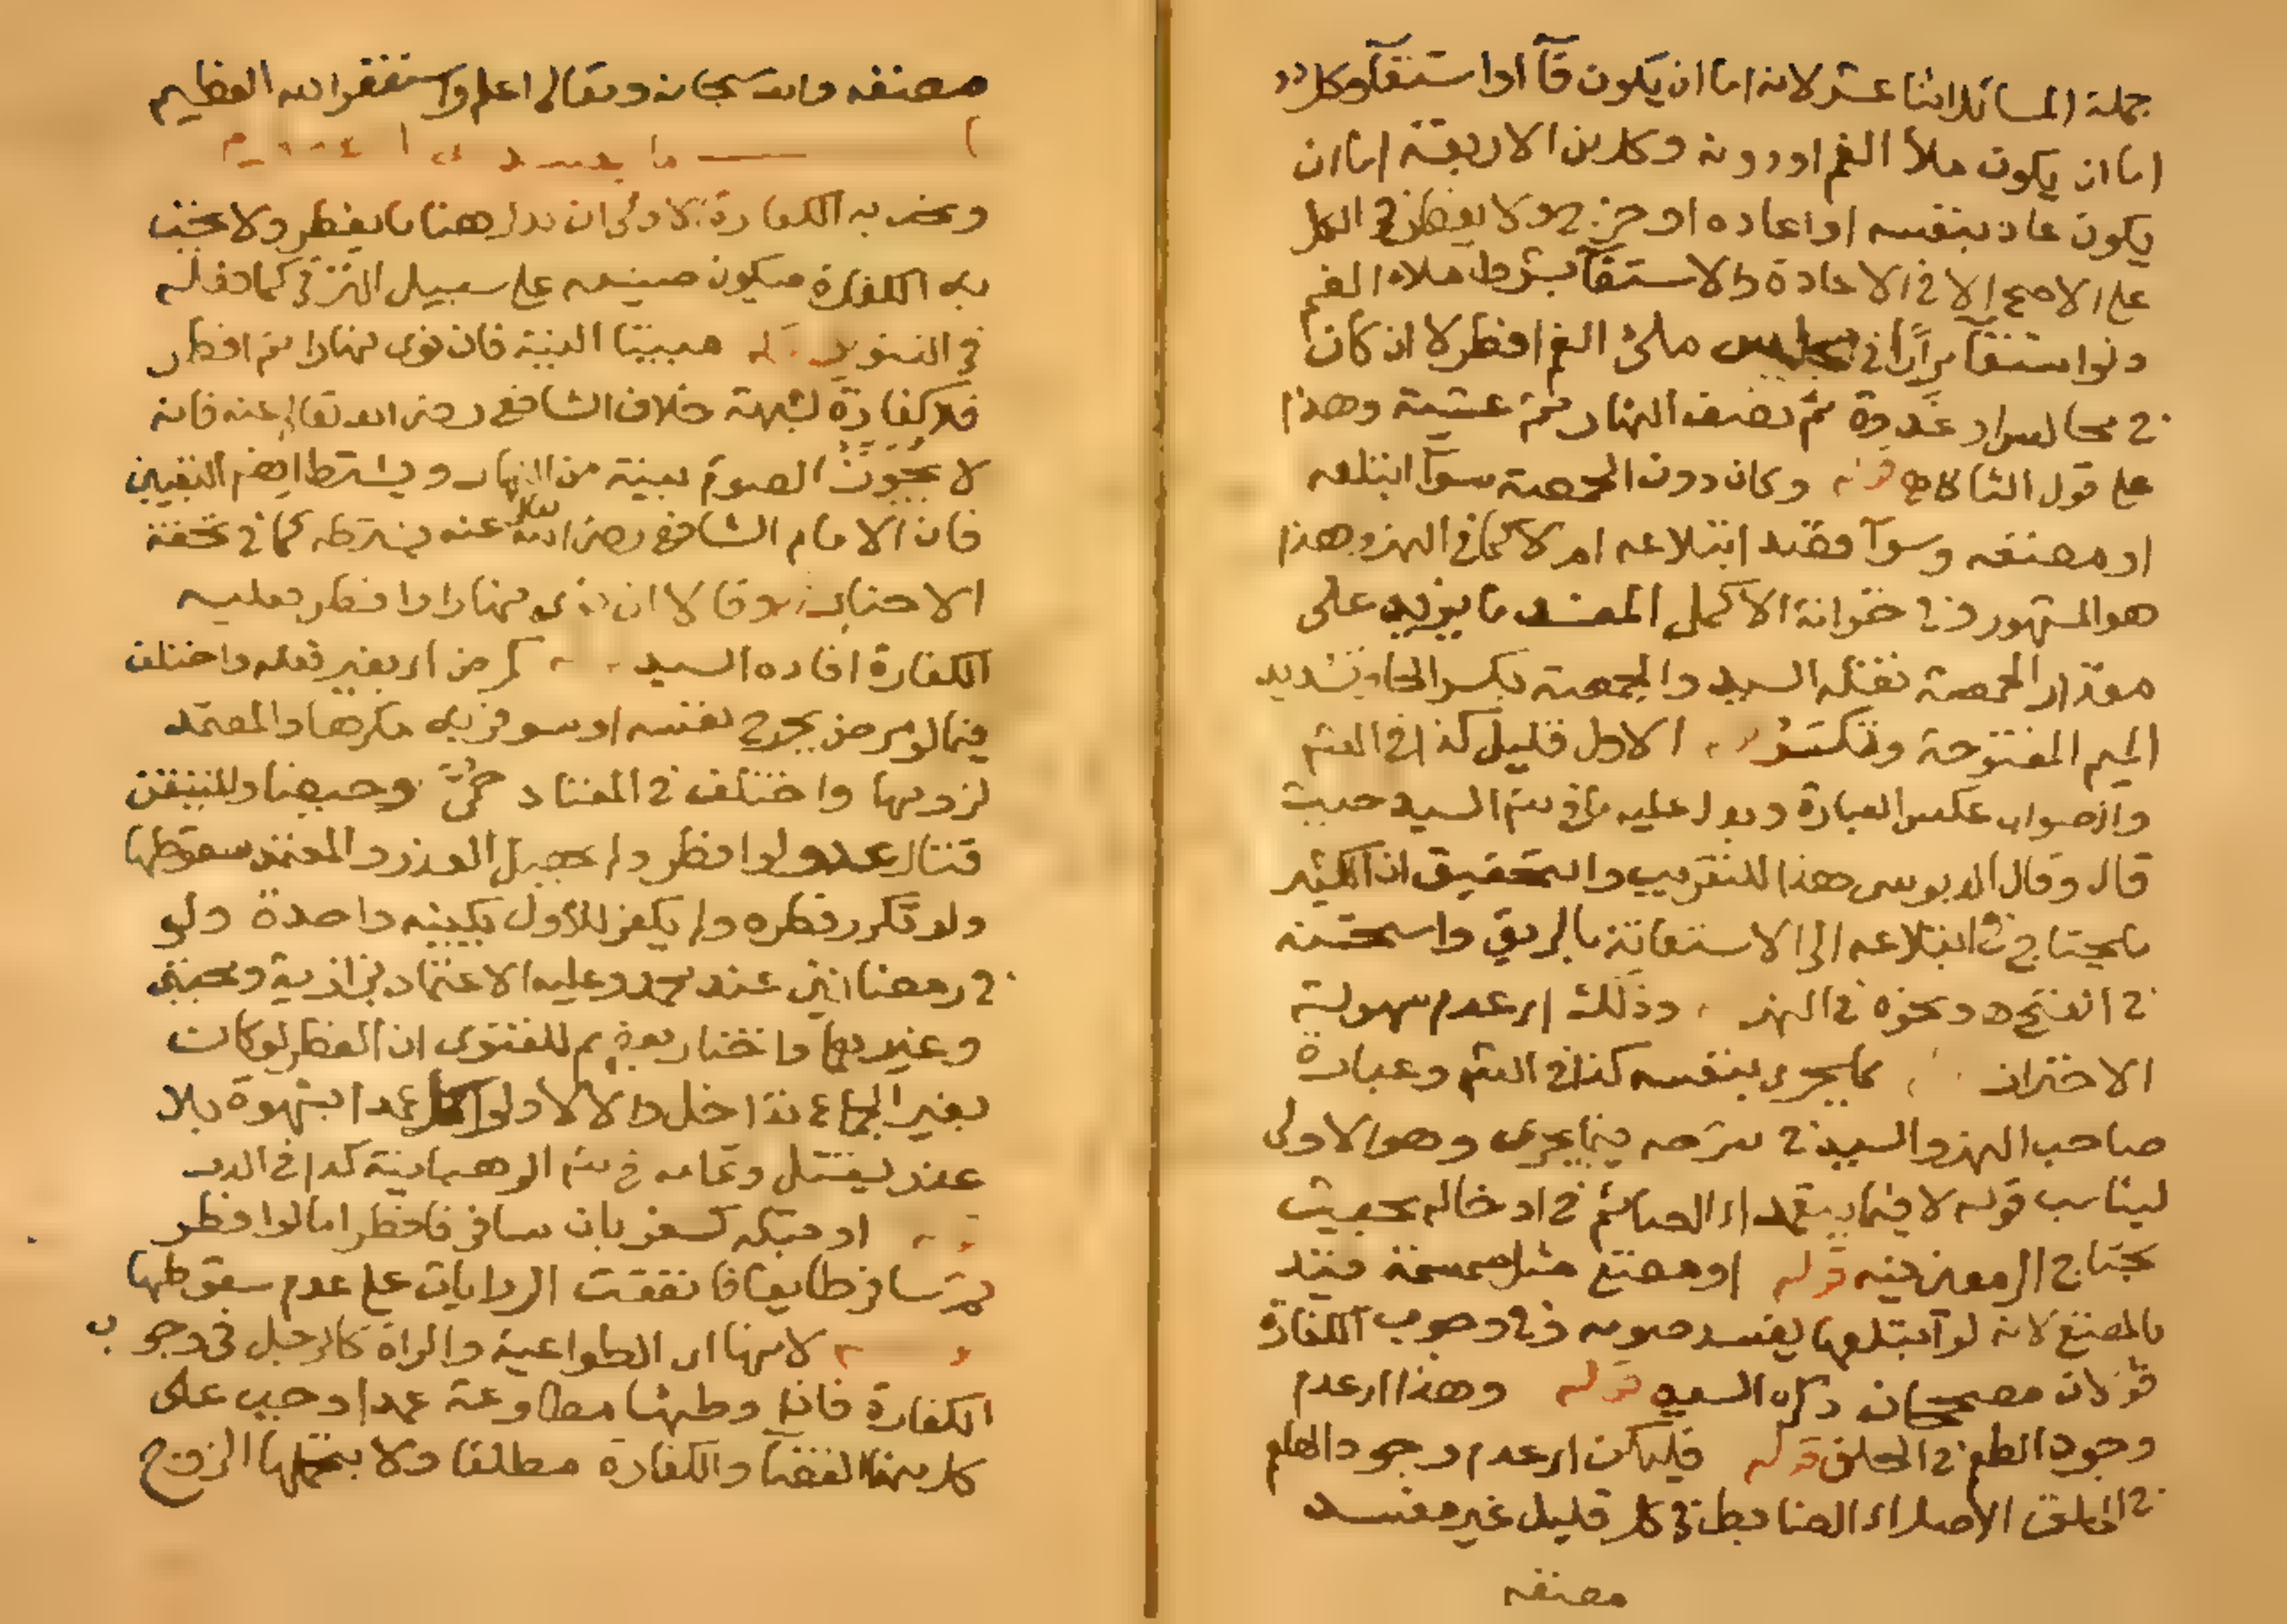 جملة المسائل اثنا عشر لانه اما ان يكون قآ او استقآ وكل
اما ان يكون ملأ الفم او دونه وكل من الاربعة اما ان
يكون عاد بنفسه او اعاده او خرج ولا يفطر في الكل
على الاصح الا في الاعادة والاستقآ بشرط ملاء الفم
ولو استقآ مرارًا في مجلس ملئ الفم افطر لا ان كان
في مجالس او غدوة ثم نصف النهار ثم عشية وهذا
على قول الثاني قوله وكان دون الحمصة سوآ ابتلعه
او مضغه وسوآ قصد ابتلاعه ام لا كما في النهر وهذا
هو المشهور وفي خزانة الاكمل المفسد ما يزيد على
مقدار الحمصة نقله السيد والحمصة بكسر الحا وتشديد
الميم المفتوحة وتكسر الاول قليل كذا في الشم
والصواب عكس العبارة ويدل عليه ما في شم السيد حيث
قال وقال الدبوسي هذا للتقريب والتحقيق ان الكثير
ما يحتاج في ابتلاعه الى الاستعانة بالريق واستحسنه
في الفتح ونحوه في النهر وذلك اي عدم سهولة
الاحتراز ما يجري بنفسه كذا في الشم وعبارة
صاحب النهر والسيد في شرحه فيما يجري وهو الاولى
ليناسب قوله لا فيما يتعمد اي الصائم في ادخاله بحيث
يحتاج الى فيه قوله او مضغ مثل سمسمة قيد
بالمضغ لانه لو آبتلعها يفسد صومه وفي وجوب الكفارة
قولان مصححان ذكره السيد قوله وهذا اي عدم
وجود الطعم في الحلق قوله فليكن اي عدم وجود الطعم
في الحلق الاصل اي الضابط في كل قليل غير مفسد
مضغه
مضغه والله سبحانه وتعالى اعلم واستغفر الله العظيم
ما يفسد
به الكفارة الاولى ان هنا ما يفطر ولا تجب
به الكفارة فيكون صنيعه على سبيل الترقي كما فعله
في التنوير مبيتا النية فان نوى نهارا ثم افطر
فلا كفارة لشبهة خلاف الشافعي رضى الله تعالى عنه فانه
لا يجوز الصوم بنية من النهار ويشترط ايضا التعيين
فان الامام الشافعي رضى الله تعالى عنه يشترطه كما في تحفة
الاخيار وقالا ان نوى نهارا وافطر فعليه
الكفارة افاده السيد كمرض اي بغير فعله واختلف
فيما لو مرض بجرح نفسه او سوفر به مكرها والمعتمد
لزومها واختلف في المعتاد حمى وحيضا والمتيقن
قتال عدو لو افطر ولم يحصل العذر والمعتمد سقوطها
ولو تكرر فطره ولم يكفر للاول يكفيه واحدة ولو
في رمضانين عند محمد وعليه الاعتماد بزازية ومجتبى
وغيرهما واختار بعضهم للفتوى ان الفطر لو كان
بغير الجماع تداخل والا لا ولو اكل عمدا بشهوة بلا
عذر يقتل وتمامه في شم الوهبانية كذا في الدر
او مبيحه كسفر بان سافر فافطر اما لو افطر
ثم سافر طايعا فاتفقت الروايات على عدم سقوطها
لانها اي الطواعية والمرأة كالرجل في وجوب
الكفارة فاذا وطئها مطاوعة عمدا وجب على
كل منهما القضآ والكفارة مطلقا ولا يتحملها الزوج